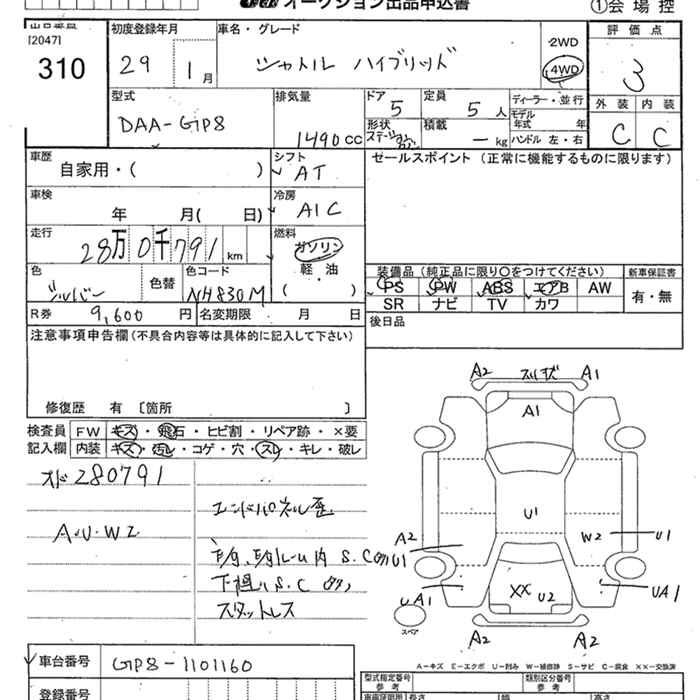 オークション出品申込書
①会場控
出品番号
[2047]
310
初度登録年月
29 1月
車名・グレード
シャトル ハイブリッド
2WD
4WD
評価点
3
外装 内装
C C
型式
DAA-GP8
排気量
1490cc
ドア
5
定員
5人
形状
ステーションワゴン
積載
-kg
ディーラー・並行
モデル年式 年
ハンドル 左・右
車歴
自家用・( )
シフト
AT
セールスポイント (正常に機能するものに限ります)
車検
年 月( 日)
冷房
AIC
走行
28万0千791km
燃料
ガソリン
軽油
( )
色
シルバー
色替
色コード
NH830M
装備品 (純正品に限り○をつけてください)
PS PW ABS エアB AW
SR ナビ TV カワ
新車保証書
有・無
R券 9,600円
名変期限 月 日
後日品
注意事項申告欄 (不具合内容等は具体的に記入して下さい)
修復歴 有 〔箇所 〕
検査員記入欄
FW キズ・飛石・ヒビ割・リペア跡・×要
内装 キズ・汚レ・コゲ・穴・スレ・キレ・破レ
オド280791
A・U・W2
エンドパネル歪
下廻り S.C
スタットレス
A2 A1
A1
U1
A2
U1
W2 U1
XX U2
UA1
UA1
スペア
A2 A2
車台番号 GP8-1101160
登録番号
A-キズ E-エクボ U-凹み W-補修跡 S-サビ C-腐食 XX-交換済
型式指定番号
参考
類別区分番号
参考